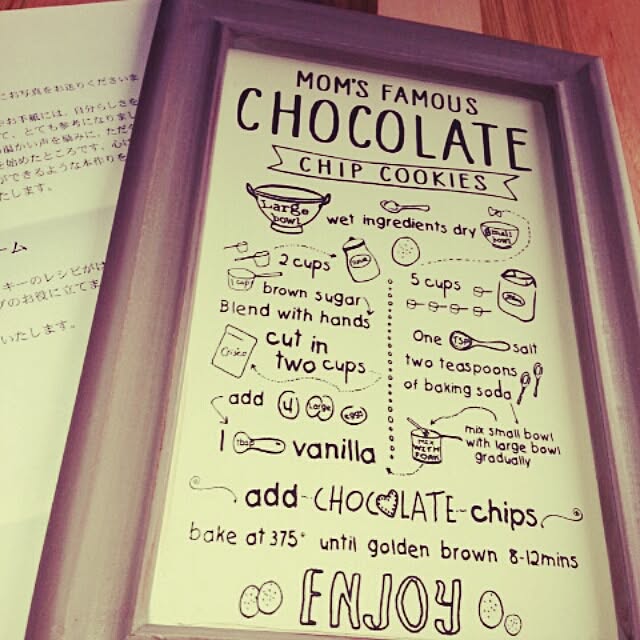 にお写真をお送りくださいま
お手紙には、自分らしさを
て、とても参考になりまし
温かい声を励みに、ただ今
を始めたところです。心に
ができるような本作りを
たします。
ーム
キーのレシピが
のお役に立てま
いたします。
MOM'S FAMOUS
CHOCOLATE
CHIP COOKIES
Large bowl
wet ingredients dry
small bowl
2 cups
1 cup
brown sugar
Blend with hands
cut in
two cups
Crisco
add 4 Large eggs
1 Tbsp vanilla
5 cups
One TSP salt
two teaspoons
of baking soda
MIX WITH FORK
mix small bowl
with large bowl
gradually
add CHOCOLATE chips
bake at 375° until golden brown 8-12mins
ENJOY